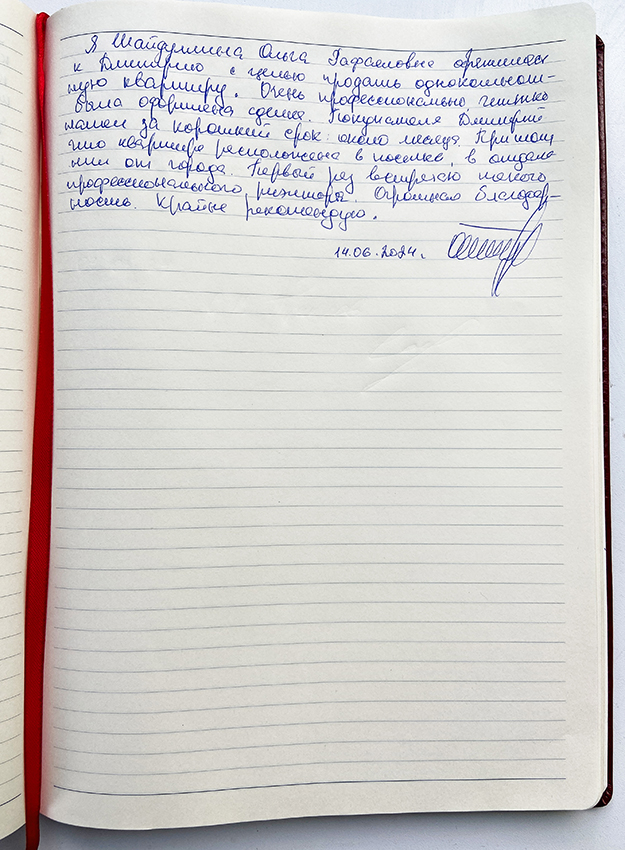 Я Шайдуллина Ольга Рафаеловна обратилась
к Дмитрию с целью продать однокомнат-
ную квартиру. Очень профессионально, гибко
была оформлена сделка. Покупателя Дмитрий
нашел за короткий срок: около месяца. При том,
что квартира расположена в поселке, в отдале-
нии от города. Первый раз встречаю такого
профессионального риэлтора. Огромная благодар-
ность. Крайне рекомендую.
14.06.2024г.